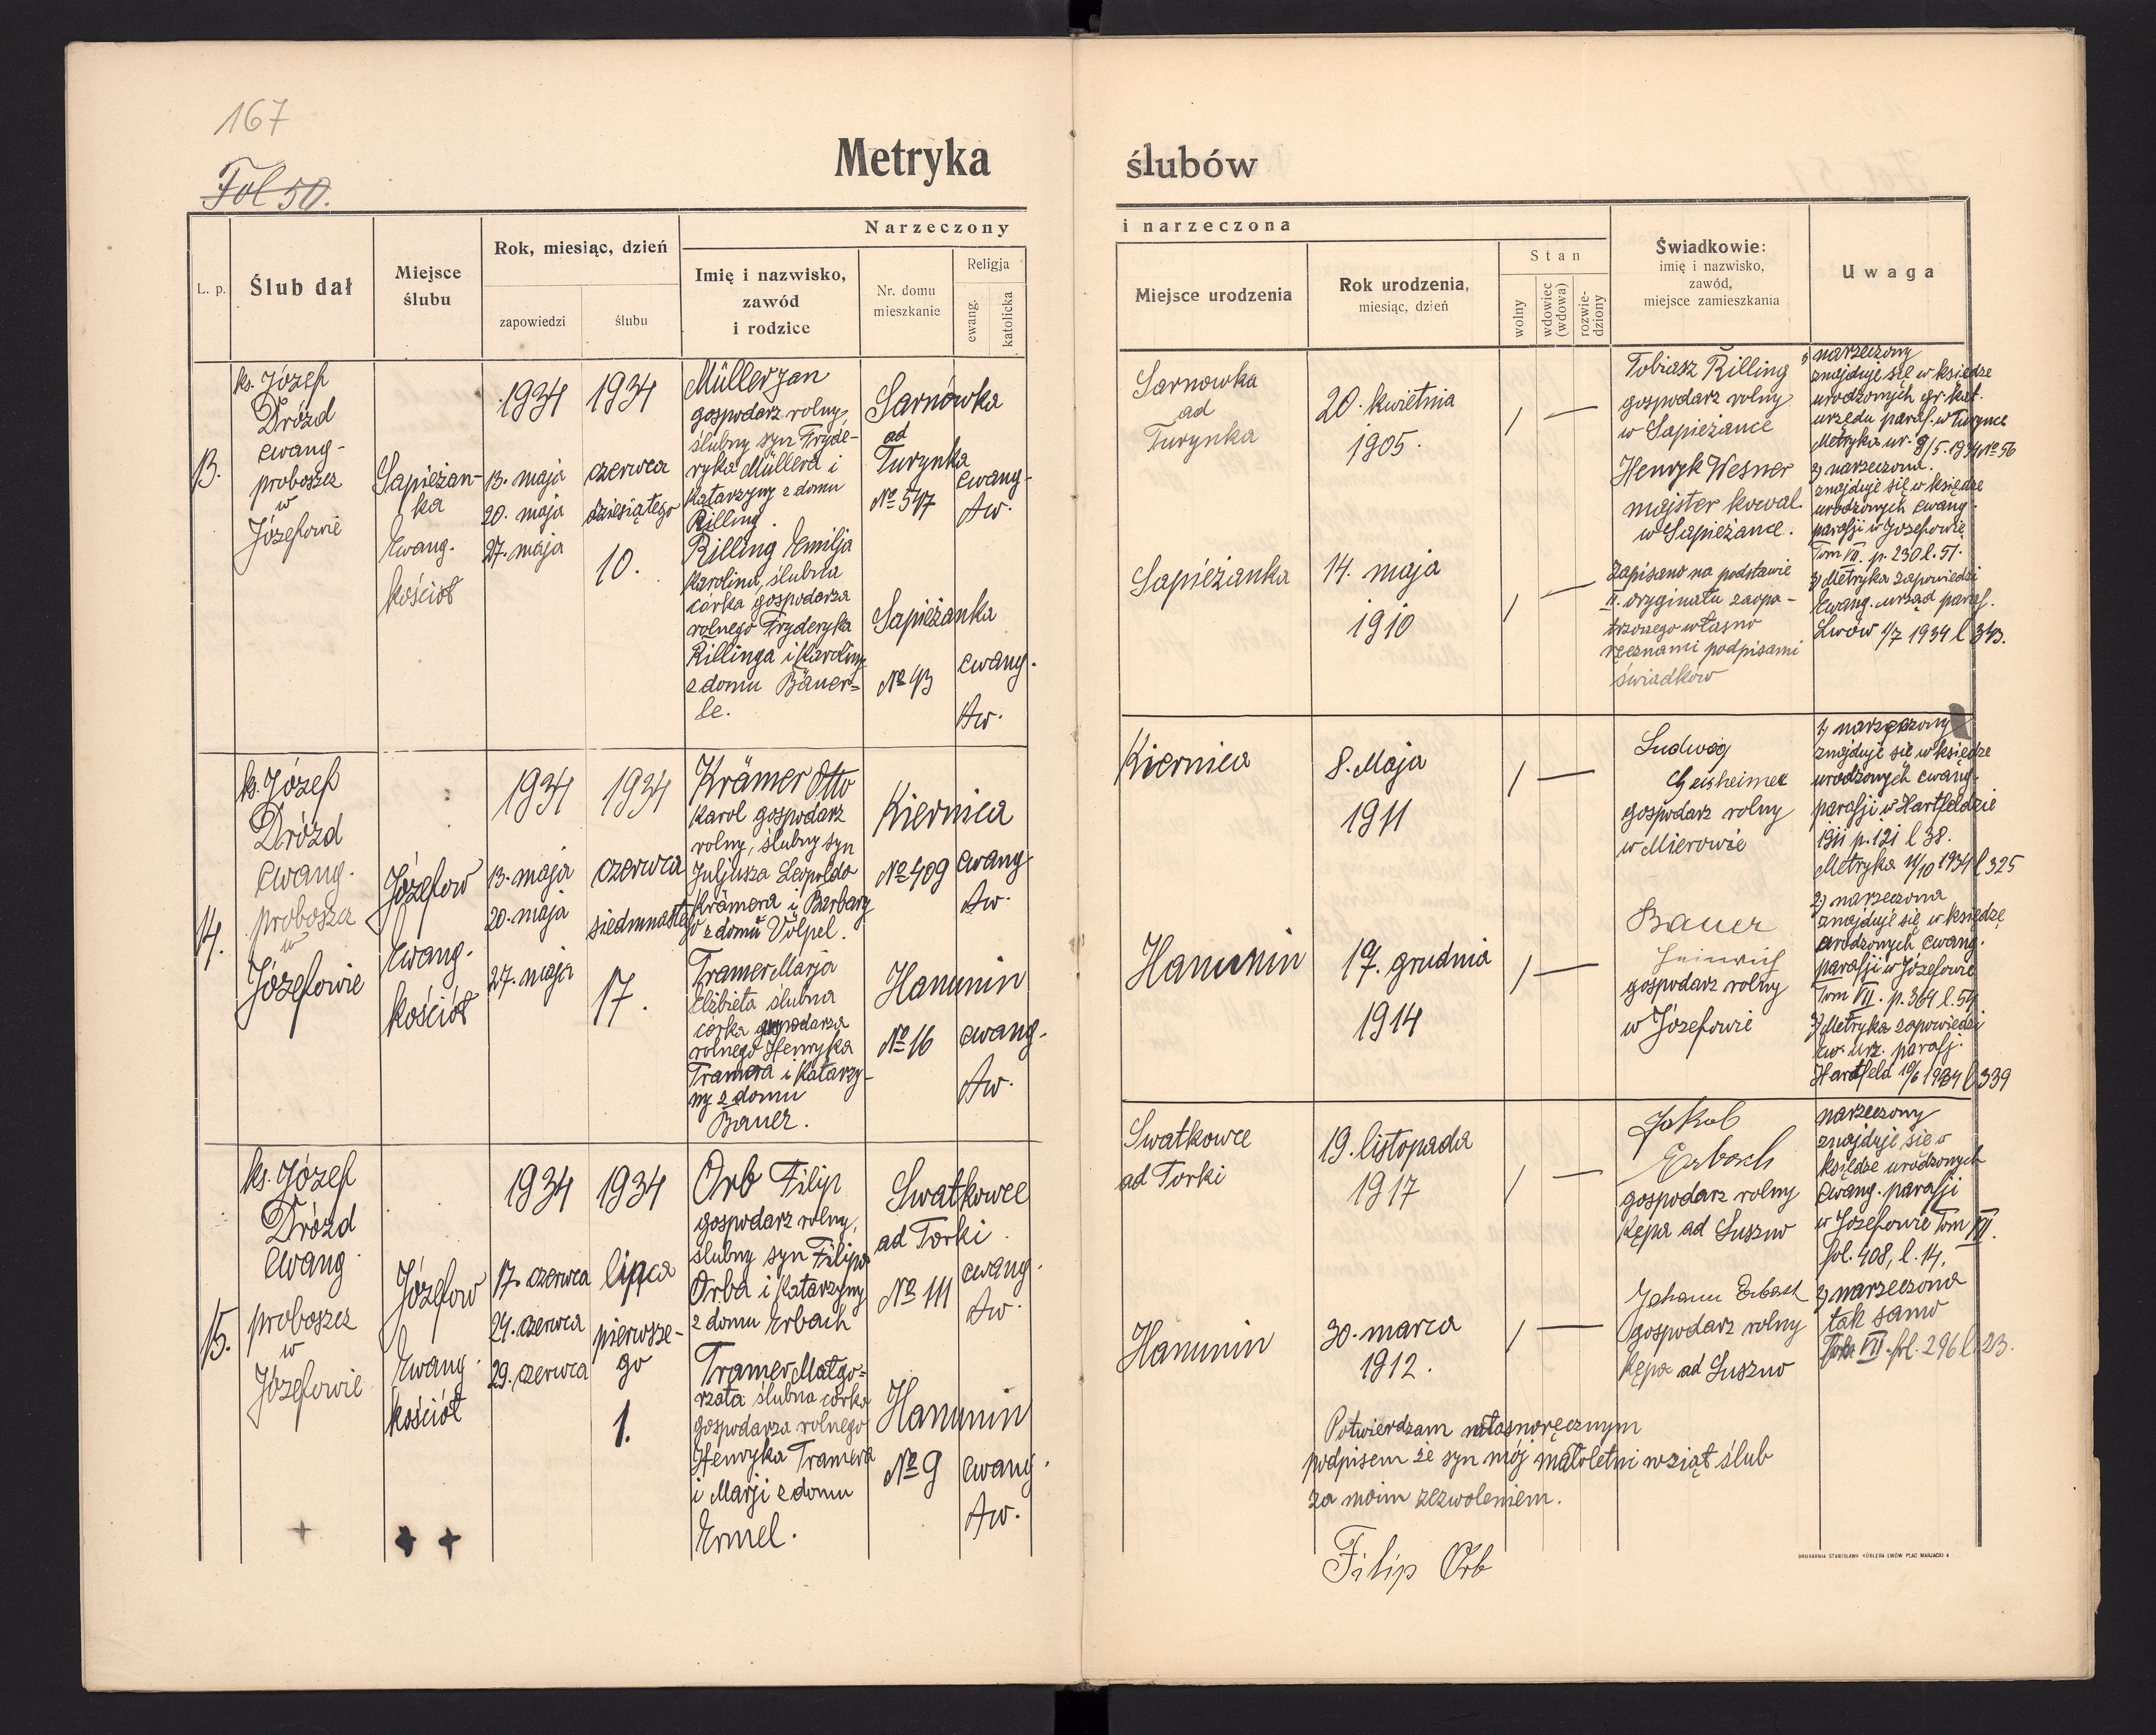 167
Fol 50.
Metryka ślubów
L. p.
Ślub dał
Miejsce
ślubu
Rok, miesiąc, dzień
zapowiedzi
ślubu
Narzeczony
Imię i nazwisko,
zawód
i rodzice
Nr. domu
mieszkanie
Religja
ewang.
katolicka
i narzeczona
Miejsce urodzenia
Rok urodzenia,
miesiąc, dzień
Stan
wolny
wdowiec
(wdowa)
rozwie-
dziony
Świadkowie:
imię i nazwisko,
zawód,
miejsce zamieszkania
Uwaga
13.
ks. Józef
Drózd
ewang-
proboszcz
w
Józefowie
Sapieżan-
ka
Ewang.
kościół
1934
13. maja
20. maja
27. maja
1934
czerwca
dziesiątego
10.
Müller Jan
gospodarz rolny,
ślubny syn Fryde-
ryka Müllera i
Katarzyny z domu
Rilling.
Rilling Emilja
Karolina, ślubna
córka gospodarza
rolnego Fryderyka
Rillinga i Karoliny
z domu Bäuer-
le.
Sarnówka
ad
Turynka
No 547
Sapieżanka
No 43
ewang-
Aw.
ewang.
Aw.
Sarnowka
ad
Turynka
Sapieżanka
20. kwietnia
1905.
14. maja
1910
/ —
/ —
Tobiasz Rilling
gospodarz rolny
w Sapieżance
Henryk Wesner
majster kowal.
w Sapieżance.
Zapisano na podstawie
II. oryginału zaopa-
trzonego własno
ręcznami podpisami
świadków
1) narzeczony
znajduje się w księdze
urodzonych gr. kat.
urzędu paraf. w Turynce
Metryka ur. 8/5. 1934 No 56
2) narzeczona.
znajduje się w księdze
urodzonych ewang.
parafji w Józefowie
Tom VII. p. 230 l. 51.
3) Metryka zapowiedzi
Ewang. urząd paraf.
Lwów 1/7 1934 l 343.
14.
ks. Józef
Drózd
ewang.
proboszcz
w
Józefowie
Józefow
Ewang.
kościół
1934
13. maja
20. maja
27. maja
1934
czerwca
siedmnastego
17.
Krämer Otto
Karol gospodarz
rolny, ślubny syn
Juljusza Leopolda
Krämera i Barbary
z domu Völpel.
Tramer Marja
Elżbieta ślubna
córka gospodarza
rolnego Henryka
Tramera i Katarzy-
ny z domu
Bauer.
Kiernica
No 409
Hanunin
No 16
ewang
Aw.
ewang.
Aw.
Kiernica
Hanunin
8. Maja
1911
17. grudnia
1914
/ —
/ —
Ludwig
Geisheimer
gospodarz rolny
w Mierowie
Bauer
Heinrich
gospodarz rolny
w Józefowie
1) narzeczony
znajduje się w księdze
urodzonych ewang.
parafji w Hartfeldzie
1911 p. 121 l 38.
Metryka 4/10 1934 l 325
2) narzeczona
znajduje się w księdze
urodzonych ewang.
parafji w Józefowie
Tom VII. p. 364 l. 54
3) Metryka zapowiedzi
Ew. urz. parafj.
Hartfeld 10/6 1934 l 339
15.
ks. Józef
Drózd
ewang.
proboszcz
w
Józefowie
Józefow
Ewang.
kościół
1934
17. czerwca
24. czerwca
29. czerwca
1934
lipca
pierwsze-
go
1.
Orb Filip
gospodarz rolny,
ślubny syn Filipa
Orba i Katarzyny
z domu Erbach
Tramer Małgo-
rzata ślubna córka
gospodarza rolnego
Henryka Tramera
i Marji z domu
Ermel.
Swatkowce
ad Torki
No 111
Hanunin
No 9
ewang.
Aw.
ewang.
Aw.
Swatkowce
ad Torki
Hanunin
19. listopada
1917
30. marca
1912.
/ —
/ —
Jakob
Erbach
gospodarz rolny
Kępa ad Suszno
Johann Erbach
gospodarz rolny
Kępa ad Suszno
narzeczony
znajduje się w
księdze urodzonych
ewang. parafji
w Józefowie Tom VII.
fol. 408, l. 14.
2) narzeczona
tak samo
Tom VII. fol. 296 l 23.
Potwierdzam własnoręcznym
podpisem że syn mój małoletni wziął ślub
za moim zezwoleniem.
Filip Orb
DRUKARNIA STANISŁAWA KÜBLERA LWÓW PLAC MARJACKI 4